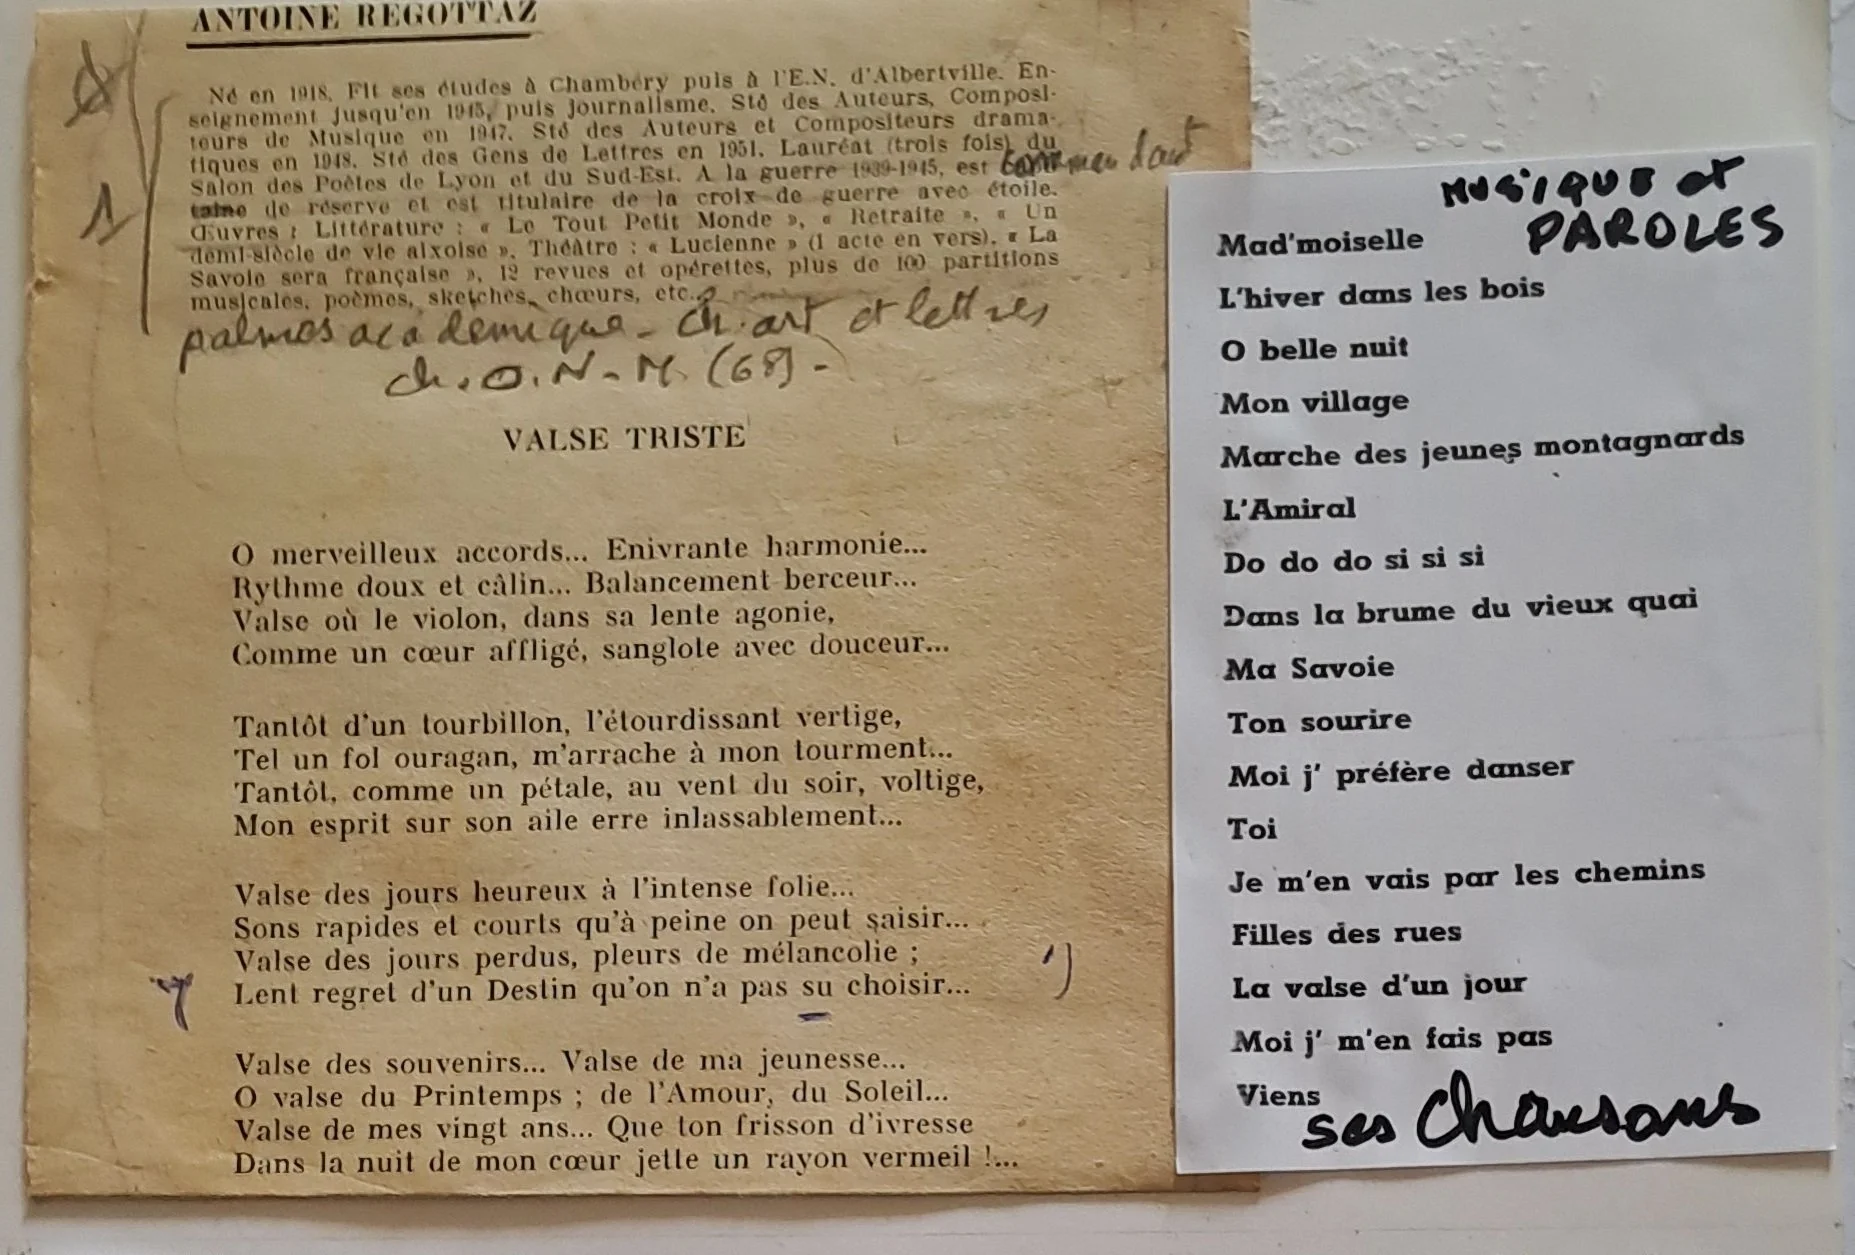 ANTOINE REGOTTAZ
Né en 1918. Fit ses études à Chambéry puis à l'E.N. d'Albertville. En-
seignement jusqu'en 1945, puis journalisme. Sté des Auteurs, Composi-
teurs de Musique en 1947. Sté des Auteurs et Compositeurs drama-
tiques en 1948. Sté des Gens de Lettres en 1951. Lauréat (trois fois) du
Salon des Poètes de Lyon et du Sud-Est. A la guerre 1939-1945, est commandant
taine de réserve et est titulaire de la croix de guerre avec étoile.
Œuvres : Littérature : « Le Tout Petit Monde », « Retraite », « Un
demi-siècle de vie aixoise ». Théâtre : « Lucienne » (1 acte en vers), « La
Savoie sera française », 12 revues et opérettes, plus de 100 partitions
musicales, poèmes, sketches, chœurs, etc.
palmes académique - ch. art et lettres
ch. O. N. M. (68) -
1
VALSE TRISTE
O merveilleux accords... Enivrante harmonie...
Rythme doux et câlin... Balancement berceur...
Valse où le violon, dans sa lente agonie,
Comme un cœur affligé, sanglote avec douceur...
Tantôt d'un tourbillon, l'étourdissant vertige,
Tel un fol ouragan, m'arrache à mon tourment...
Tantôt, comme un pétale, au vent du soir, voltige,
Mon esprit sur son aile erre inlassablement...
Valse des jours heureux à l'intense folie...
Sons rapides et courts qu'à peine on peut saisir...
Valse des jours perdus, pleurs de mélancolie ;
Lent regret d'un Destin qu'on n'a pas su choisir...
Valse des souvenirs... Valse de ma jeunesse...
O valse du Printemps ; de l'Amour, du Soleil...
Valse de mes vingt ans... Que ton frisson d'ivresse
Dans la nuit de mon cœur jette un rayon vermeil !...
MUSIQUE et
PAROLES
Mad'moiselle
L'hiver dans les bois
O belle nuit
Mon village
Marche des jeunes montagnards
L'Amiral
Do do do si si si
Dans la brume du vieux quai
Ma Savoie
Ton sourire
Moi j' préfère danser
Toi
Je m'en vais par les chemins
Filles des rues
La valse d'un jour
Moi j' m'en fais pas
Viens
ses chansons